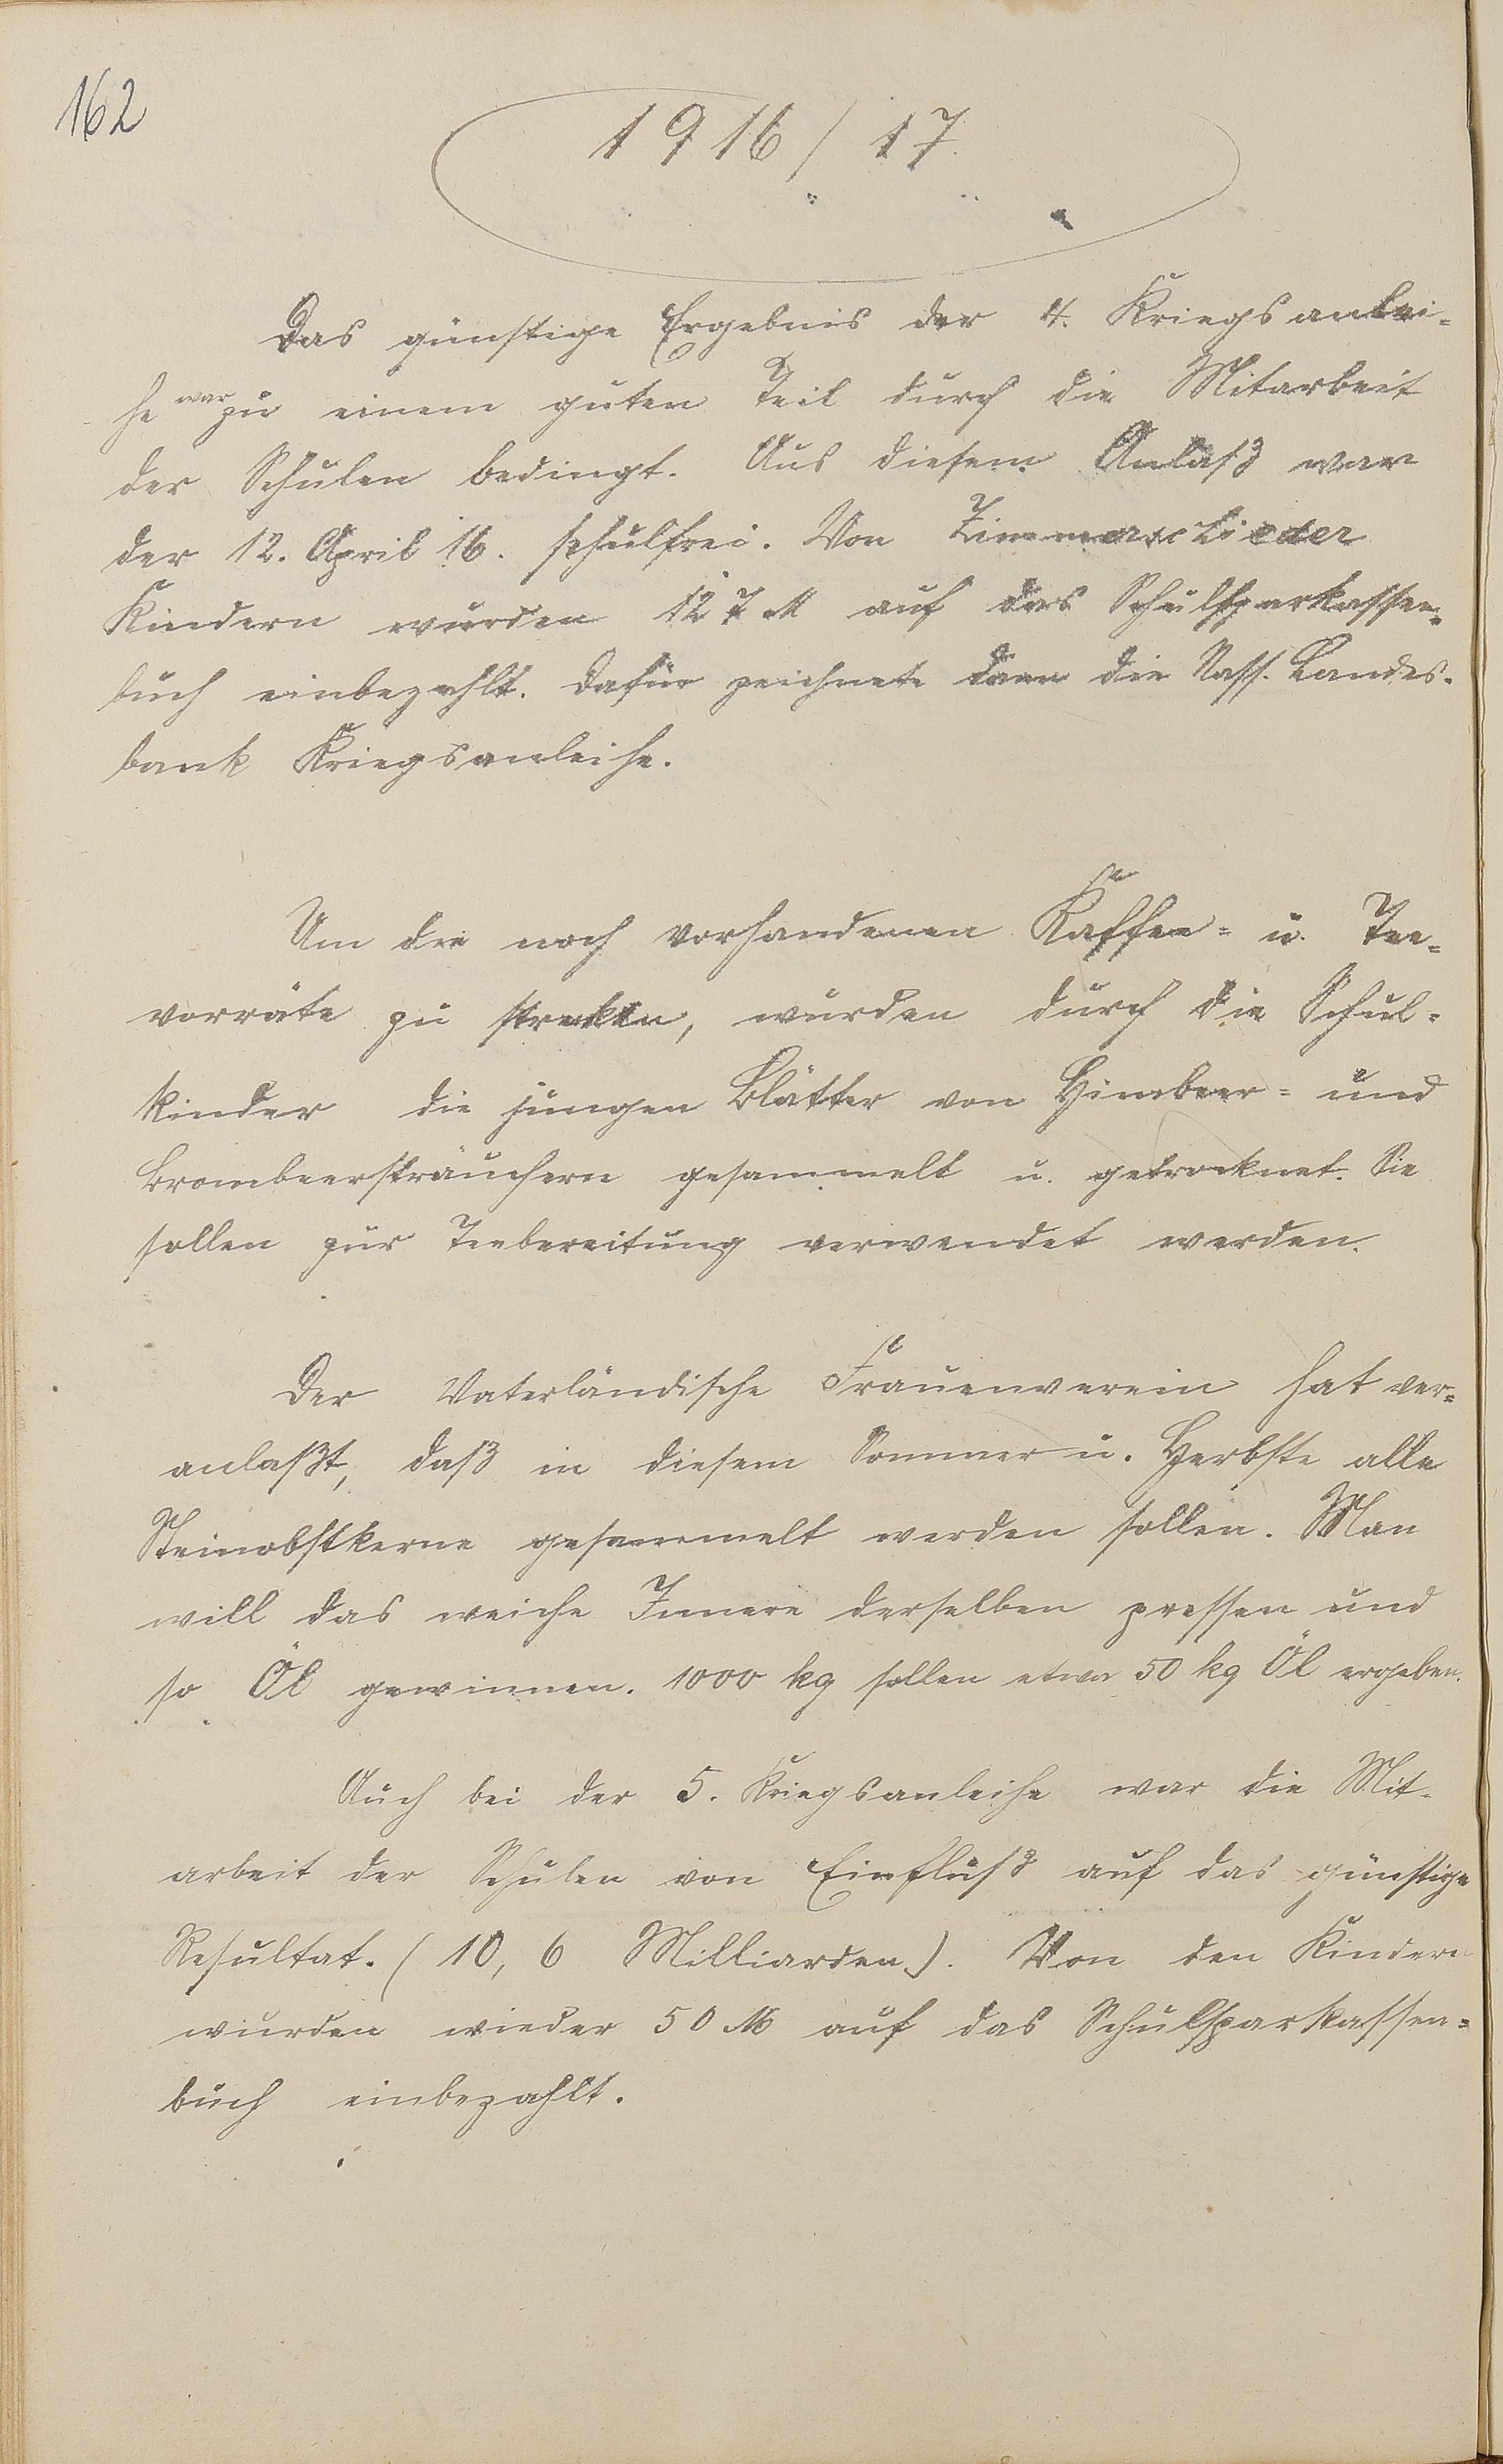 162
1916/17.
Das günstige Ergebnis der 4. Kriegsanlei-
he war zu einem guten Teil durch die Mitarbeit
der Schulen bedingt. Aus diesem Anlaß war
der 12. April 16. schulfrei. Von Zimmerschieder
Kindern wurden 127 M auf das Schulsparkassen-
buch einbezahlt. Dafür zeichnete dann die Nass. Landes-
bank Kriegsanleihe.
Um die noch vorhandenen Kaffee= u. Tee-
vorräte zu strecken, wurden durch die Schul-
kinder die jungen Blätter von Himbeer= und
Brombeersträuchern gesammelt u. getrocknet. Sie
sollen zur Teebereitung verwendet werden.
Der Vaterländische Frauenverein hat ver=
anlaßt, daß in diesem Sommer u. Herbste alle
Steinobstkerne gesammelt werden sollen. Man
will das weiche Innere derselben pressen und
so Öl gewinnen. 1000 kg sollen etwa 50 kg Öl ergeben.
Auch bei der 5. Kriegsanleihe war die Mit-
arbeit der Schulen von Einfluß auf das günstige
Resultat. (10,6 Milliarden). Von den Kindern
wurden wieder 50 M auf das Schulsparkassen=
buch einbezahlt.